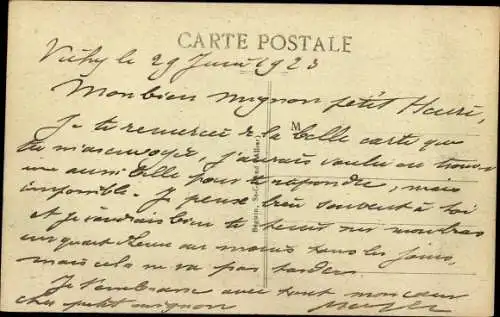 CARTE POSTALE
Vichy le 29 Juin 1923
Mon bien mignon petit Henri,
M
Je te remercie de la belle carte que
tu m'as envoyée, j'aurais voulu en trouver
une aussi belle pour te répondre, mais
impossible. Je pense bien souvent à toi
et je voudrais bien te tenir sur
un quart d'heure au moins tous les jours,
mais cela ne va pas tarder.
Je t'embrasse avec tout mon cœur
cher petit mignon